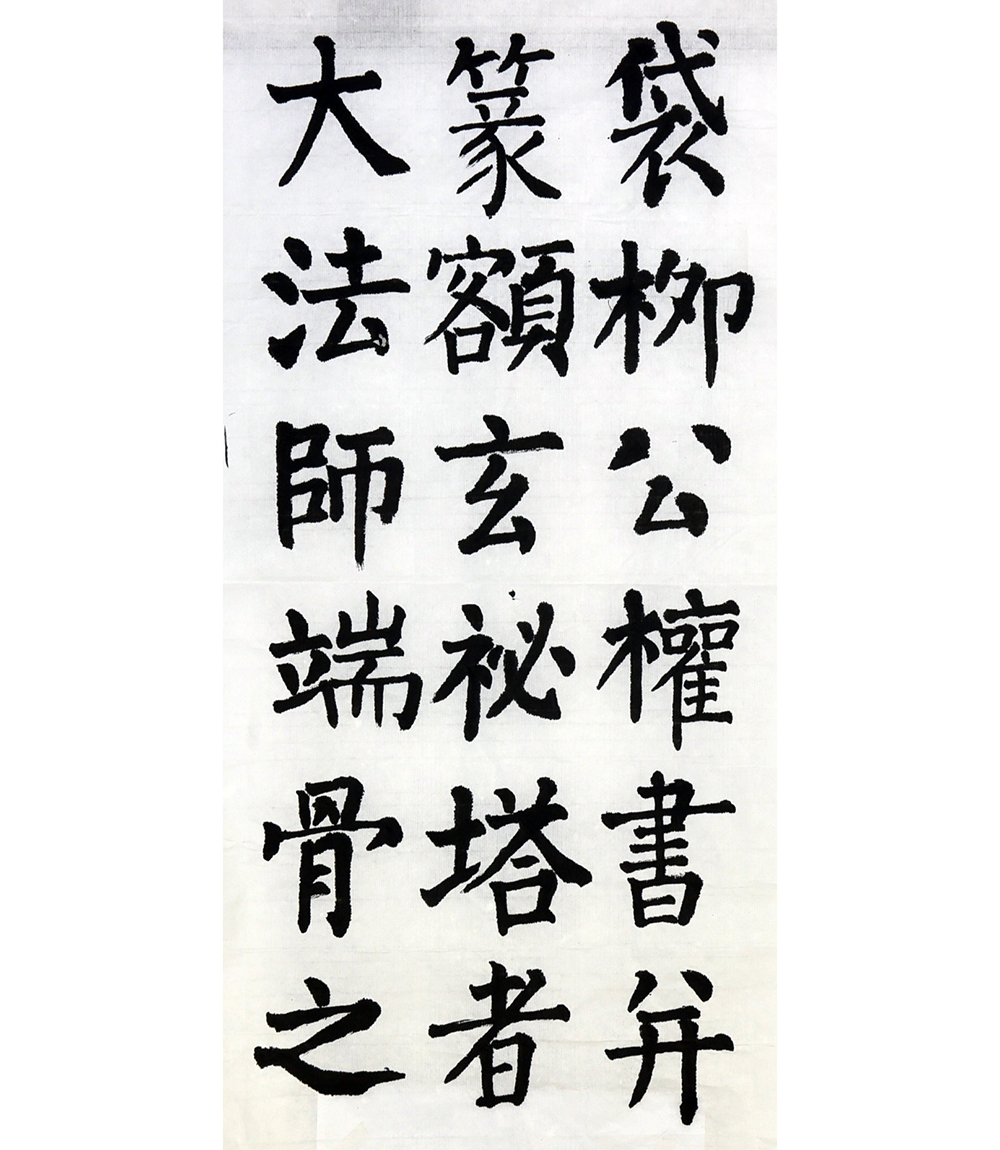 袋柳公權書并
篆額玄祕塔者
大法師端骨之